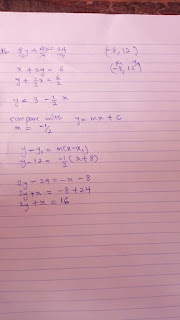 8y + 4x = 24 (-8, 12)
x + 2y = 6 (-8, 12)
y + 1/2 x = 6/2
y = 3 - 1/2 x
compare with y = mx + c
m = -1/2
y - y₁ = m(x - x₁)
y - 12 = -1/2 (x + 8)
2y - 24 = -x - 8
2y + x = -8 + 24
2y + x = 16